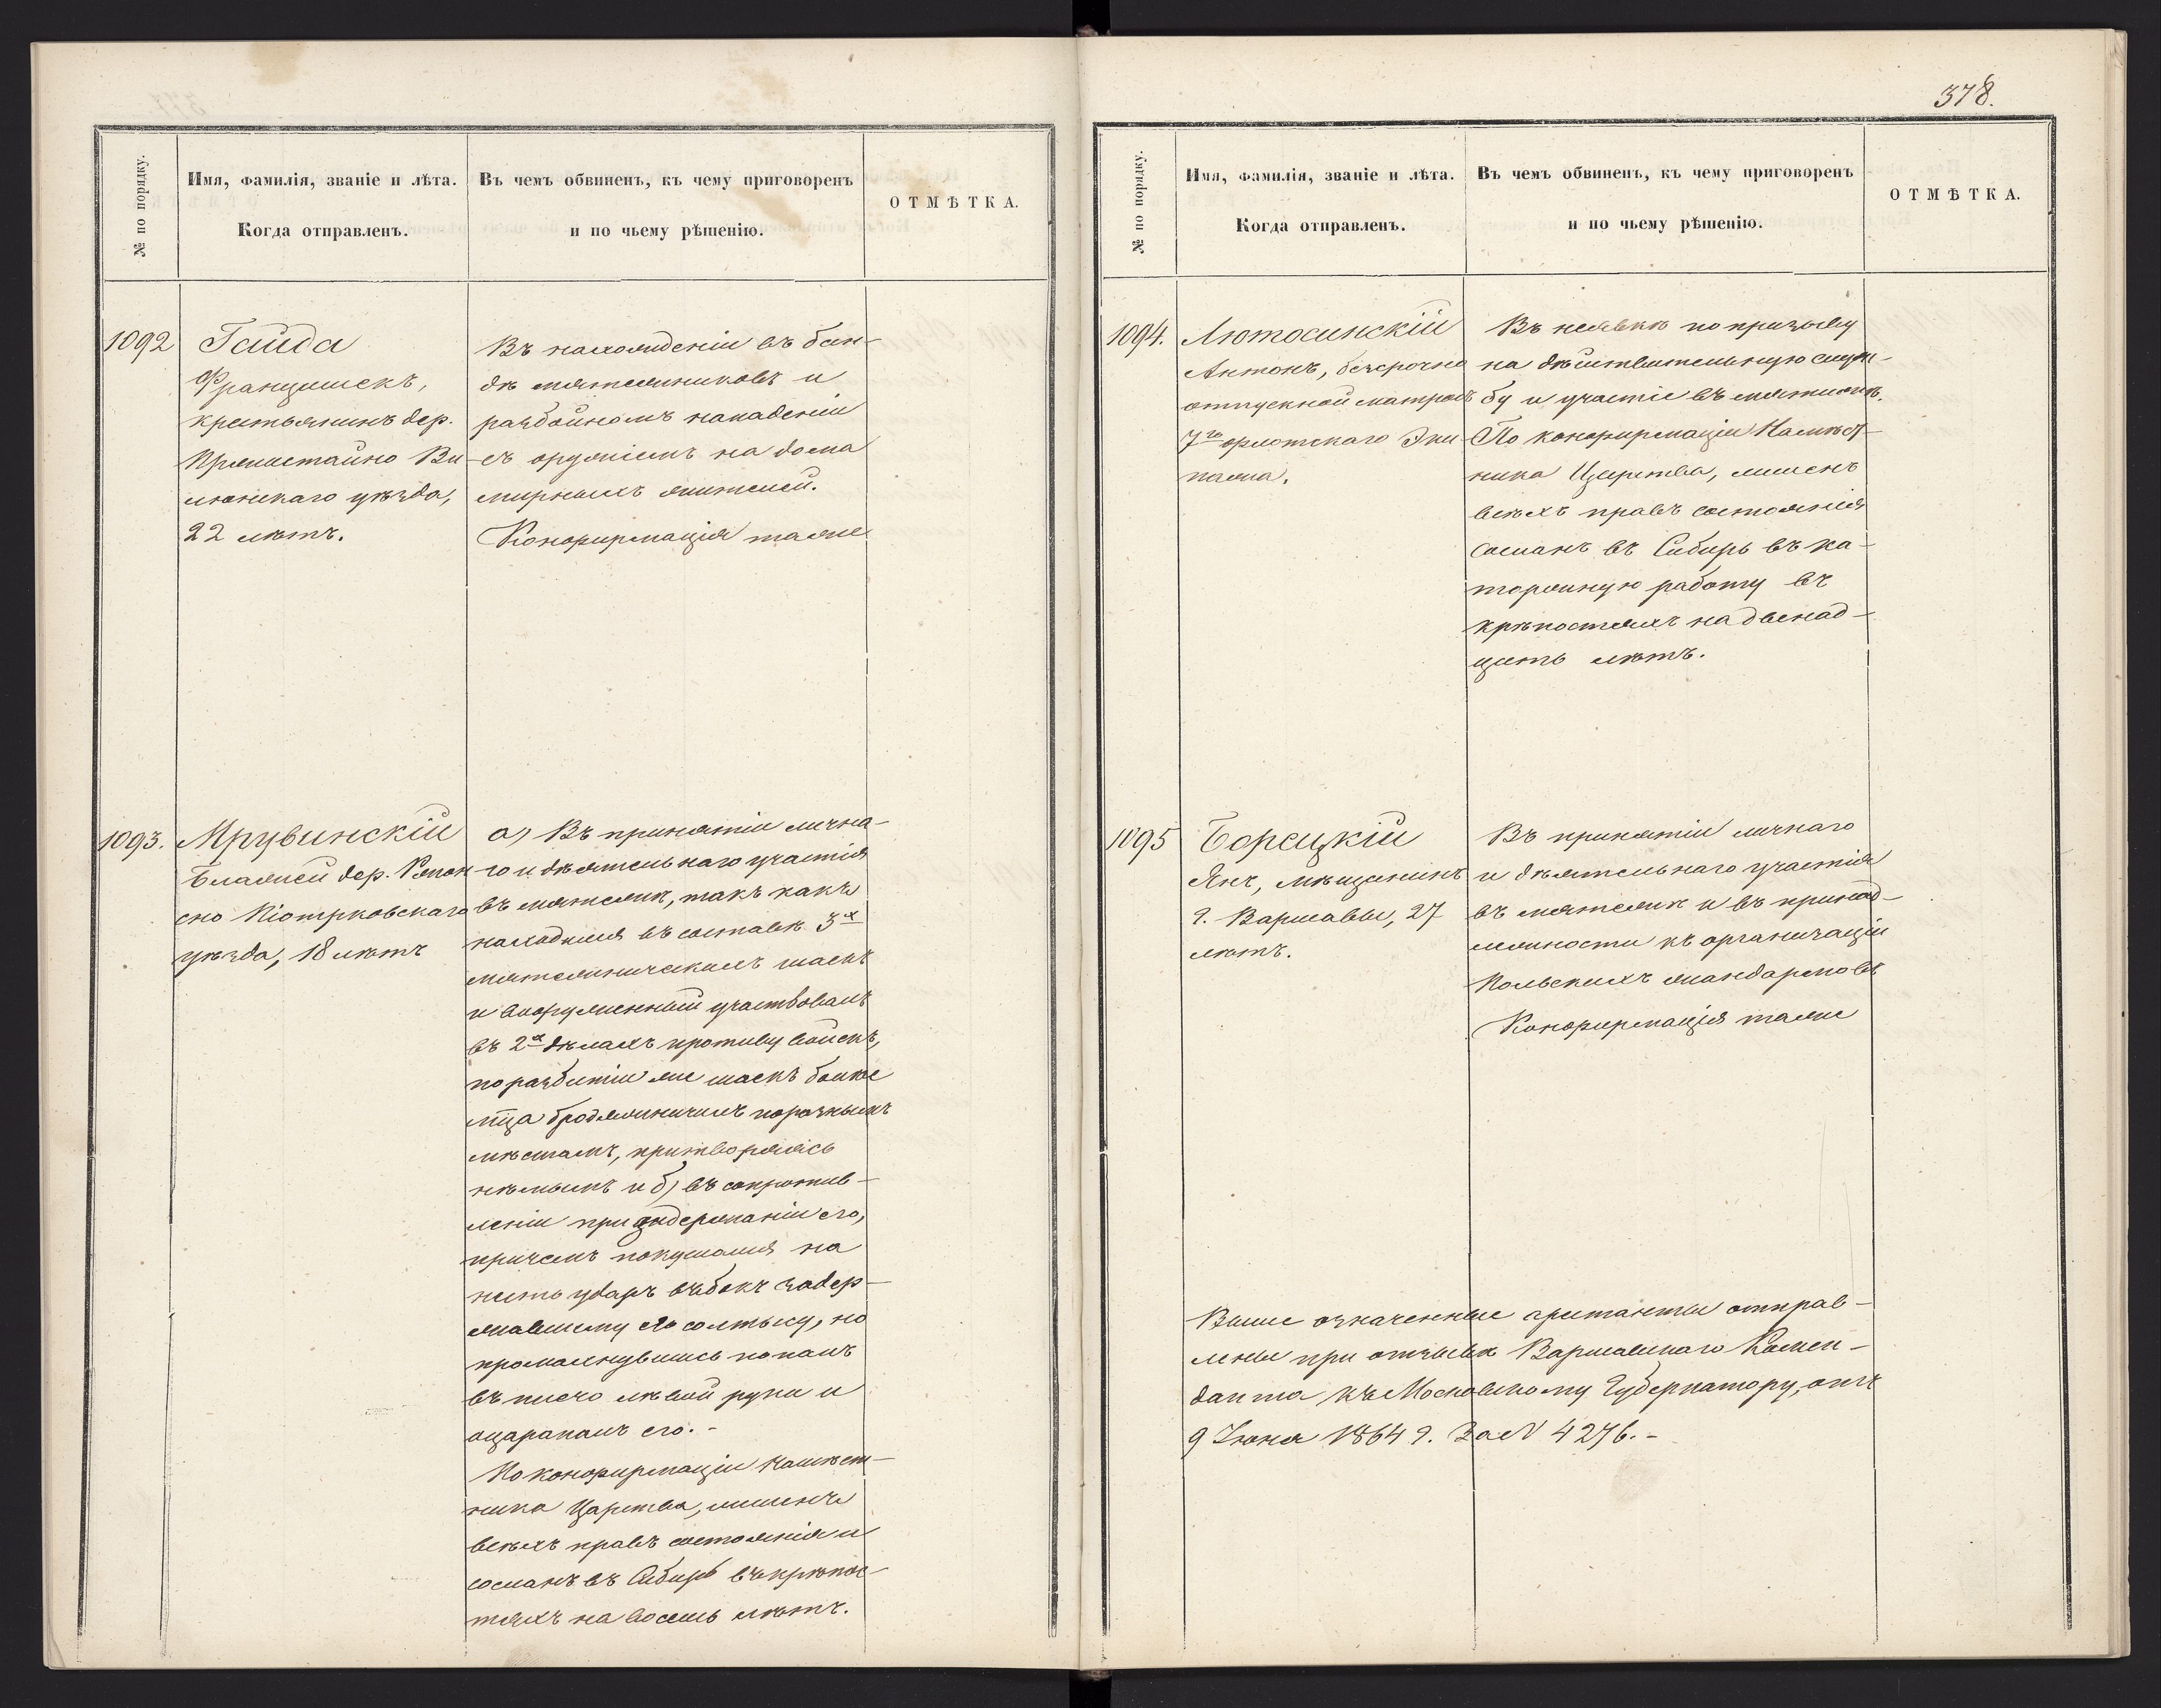 378.
№ по порядку.
Имя, фамилія, званіе и лѣта.
Когда отправленъ.
Въ чемъ обвиненъ, къ чему приговоренъ
и по чьему рѣшенію.
ОТМѢТКА.
1092
Гайда
Францишекъ,
крестьянинъ дер.
Ви-
люнскаго уѣзда,
22 лѣтъ.
Въ нахожденіи въ бан-
дѣ мятежниковъ и
разбойномъ нападеніи
съ оружіемъ на дома
мирныхъ жителей.
Конфирмація таже
1093.
Мрувинскій
Блажей дер.
Піотрковскаго
уѣзда, 18 лѣтъ
а) Въ принятіи лична-
го и дѣятельнаго участія
въ мятежѣ, такъ какъ
находился въ составѣ 3х
мятежническихъ шаекъ
и вооруженный участвовалъ
въ 2х дѣлахъ противу войскъ,
по разбитіи же шаекъ болѣе
мца бродяжничалъ по разнымъ
мѣстамъ, притворяясь
нѣмымъ и б) въ сопротив-
леніи при задержаніи его,
причемъ покушался на
ность ударъ въ бокъ задер-
жавшему его солтысу, но
промахнувшись попалъ
въ плечо лѣвой руки и
оцарапалъ его.-
По конфирмаціи Намѣст-
ника Царства, лишенъ
всѣхъ правъ состоянія и
сосланъ въ Сибирь въ крѣпос-
тяхъ на восемь лѣтъ.
№ по порядку.
Имя, фамилія, званіе и лѣта.
Когда отправленъ.
Въ чемъ обвиненъ, къ чему приговоренъ
и по чьему рѣшенію.
ОТМѢТКА.
1094.
Лютосинскій
Антонъ, безсрочно
отпускной матросъ
7го флотскаго Эки-
пажа.
Въ неявкѣ по призыву
на дѣйствительную служ-
бу и участіе въ мятежѣ.
По конфирмаціи Намѣст-
ника Царства, лишенъ
всѣхъ правъ состоянія
сосланъ въ Сибирь въ ка-
торжную работу въ
крѣпостяхъ на двенад-
цать лѣтъ.
1095
Борецкій
Янъ, мѣщанинъ
г. Варшавы, 27
лѣтъ.
Въ принятіи личнаго
и дѣятельнаго участія
въ мятежѣ и въ принад-
лежности къ организаціи
Польскихъ жандармовъ
Конфирмація таже
Выше означенные арестанты отправ-
лены при отзывѣ Варшавскаго Комен-
данта къ Московскому Губернатору, отъ
9 Іюня 1864 г. За N 4276.-